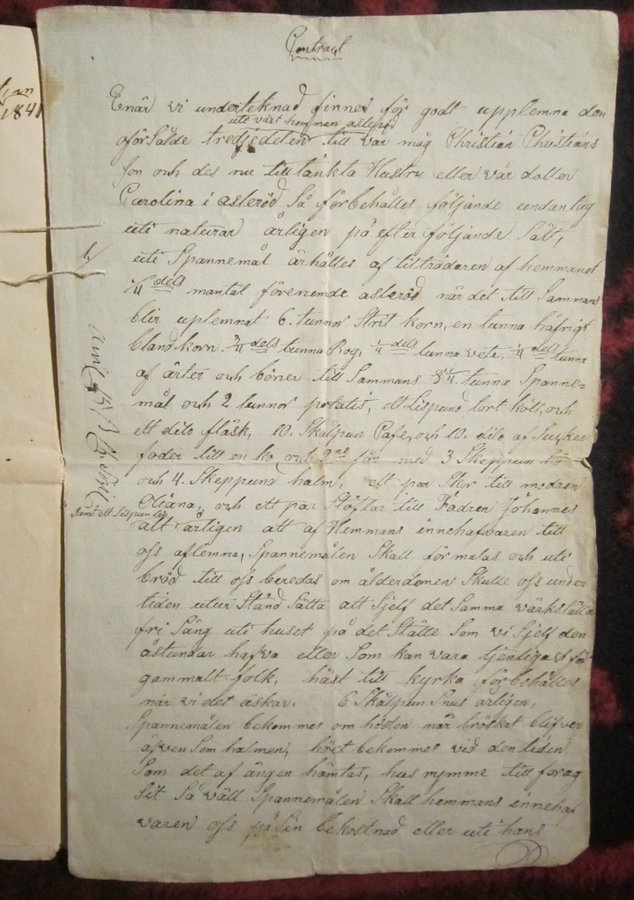 Contract
1841
Enär vi underteknad finnes för godt upplemna den
uti vårt hemman allena
oförsålde tredjedelen till vår måg Christian Christians
son och des nu tilltänkta Hustru eller vår dotter
Carolina i asteröd Så förbehålles följande undantag
uti naturar årligen på efter följande Sätt,
1/ uti Spannemål ärhålles af tillträdaren af hemmanet
1/4 dels mantal förenemde asteröd när det till Sammans
blir uplemnat 6. tunnor Strit korn, en tunna hafrigt
bland korn. 3/4 dels tunna Rog, 1/4 dels tunna veta, 1/4 dels tunna
af ärter och böner till Sammans tunna Spanne-
mål och 2 tunnor potatis, ett Lispund tort kött, och
ett dito fläsk, 10. Skålpun Cafe, och 10. dito af Sucker
foder till en ko och 2ne får med 3 Skeppun hö
och 4. Skeppund halm, ett par Skor till modren
samt ett Lispun
Oliana, och ett par Stöflar till Fadren Johannes
alt årligen att af Hemmans innehafvaren till
oss aflemna, Spannemålen Skall för malas och uti
bröd till oss beredas om ålderdomen Skulle oss under
tiden utur Stånd Sätta att Sjelf det Samma värkställa
fri Säng uti huset på det Ställe Som vi Sjelf den
åstundar hafva eller Som kan vara tjenligast för
gammalt folk, häst till kyrka förbehålles
när vi det äskar. 6 Skålpun Snus årligen,
Spannemålen bekommes om hösten när tröskat blifver
äfven Som halmen; höet bekommes vid den tiden
Som det af ängen hämtas, hus rymme till forag
Sit Så väll Spannemålen Skall hemmans inneha
varen oss på Sin bekostnad eller uti hans